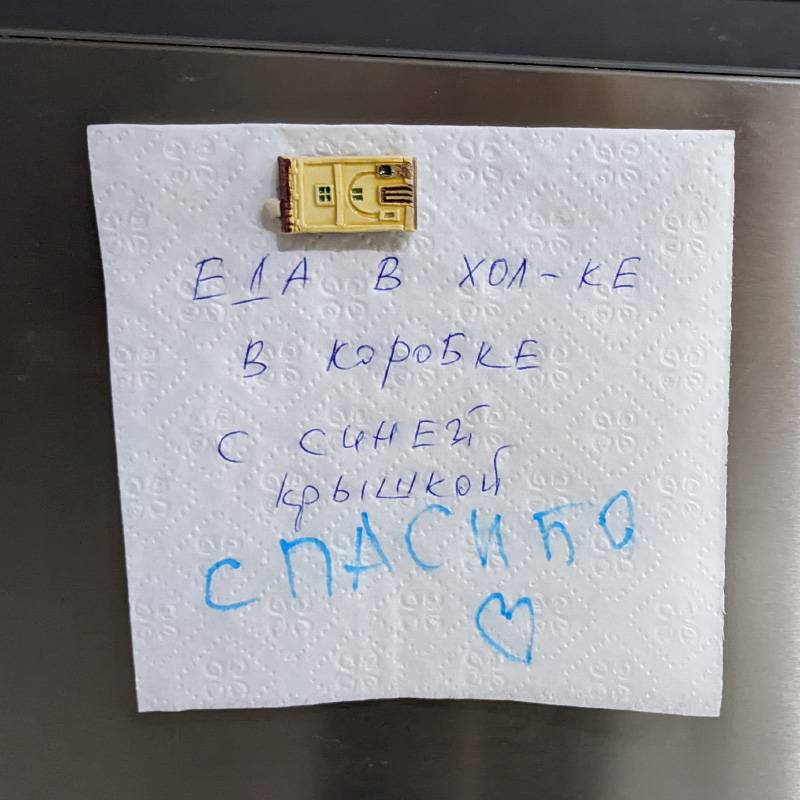 ЕДА В ХОЛ-КЕ
В КОРОБКЕ
С СИНЕЙ
КРЫШКОЙ
СПАСИБО